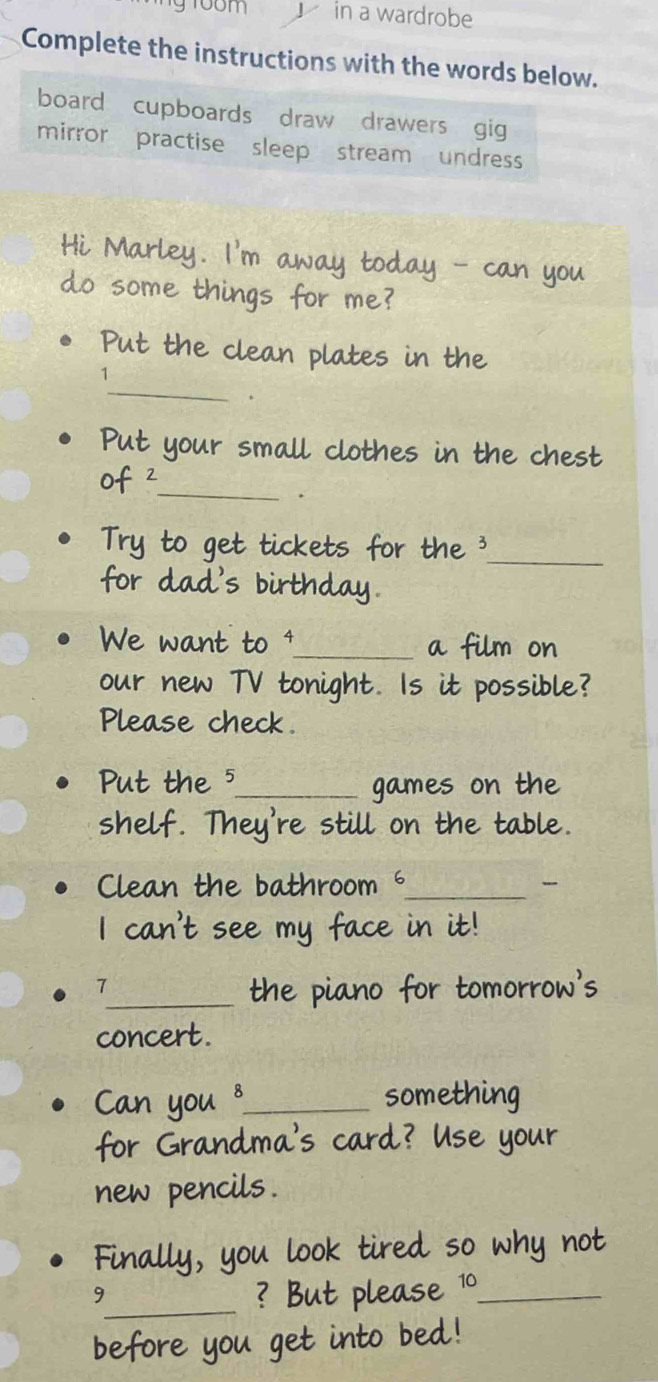 room in a wardrobe
Complete the instructions with the words below.
board cupboards draw drawers gig
mirror practise sleep stream undress
Hi Marley. I'm away today – can you
do some things for me?
• Put the clean plates in the
1________ .
• Put your small clothes in the chest
of 2________ .
• Try to get tickets for the 3________
for dad's birthday.
• We want to 4________ a film on
our new TV tonight. Is it possible?
Please check.
• Put the 5________ games on the
shelf. They're still on the table.
• Clean the bathroom 6________ –
I can't see my face in it!
• 7________ the piano for tomorrow's
concert.
• Can you 8________ something
for Grandma's card? Use your
new pencils.
• Finally, you look tired so why not
9________ ? But please 10________
before you get into bed!